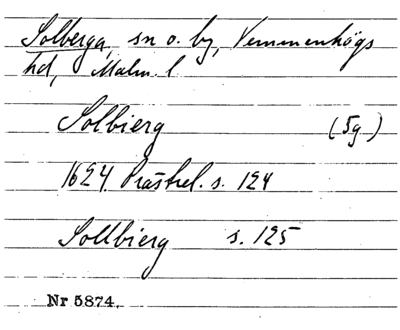 Solberga, sn o. by, Vemmenhögs
hd, Malm. l
Solbierg (5g)
1624 Prästrel. s. 124
Sollbierg s. 125
Nr 5874.